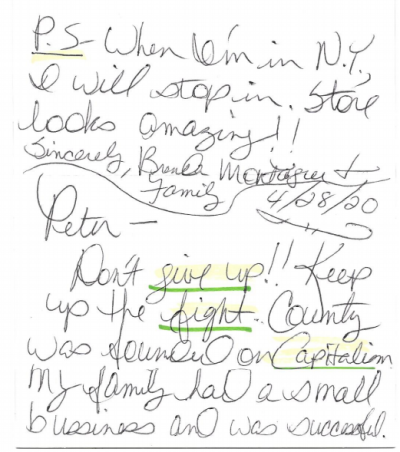 P.S- When I'm in N.Y,
I will stop in. Store
looks amazing!!
Sincerely, Brenda &
Family
4/28/20
Peter -
Don't give up!! Keep
up the fight. County
was founded on Capitalism
My family had a small
bussiness and was successful.